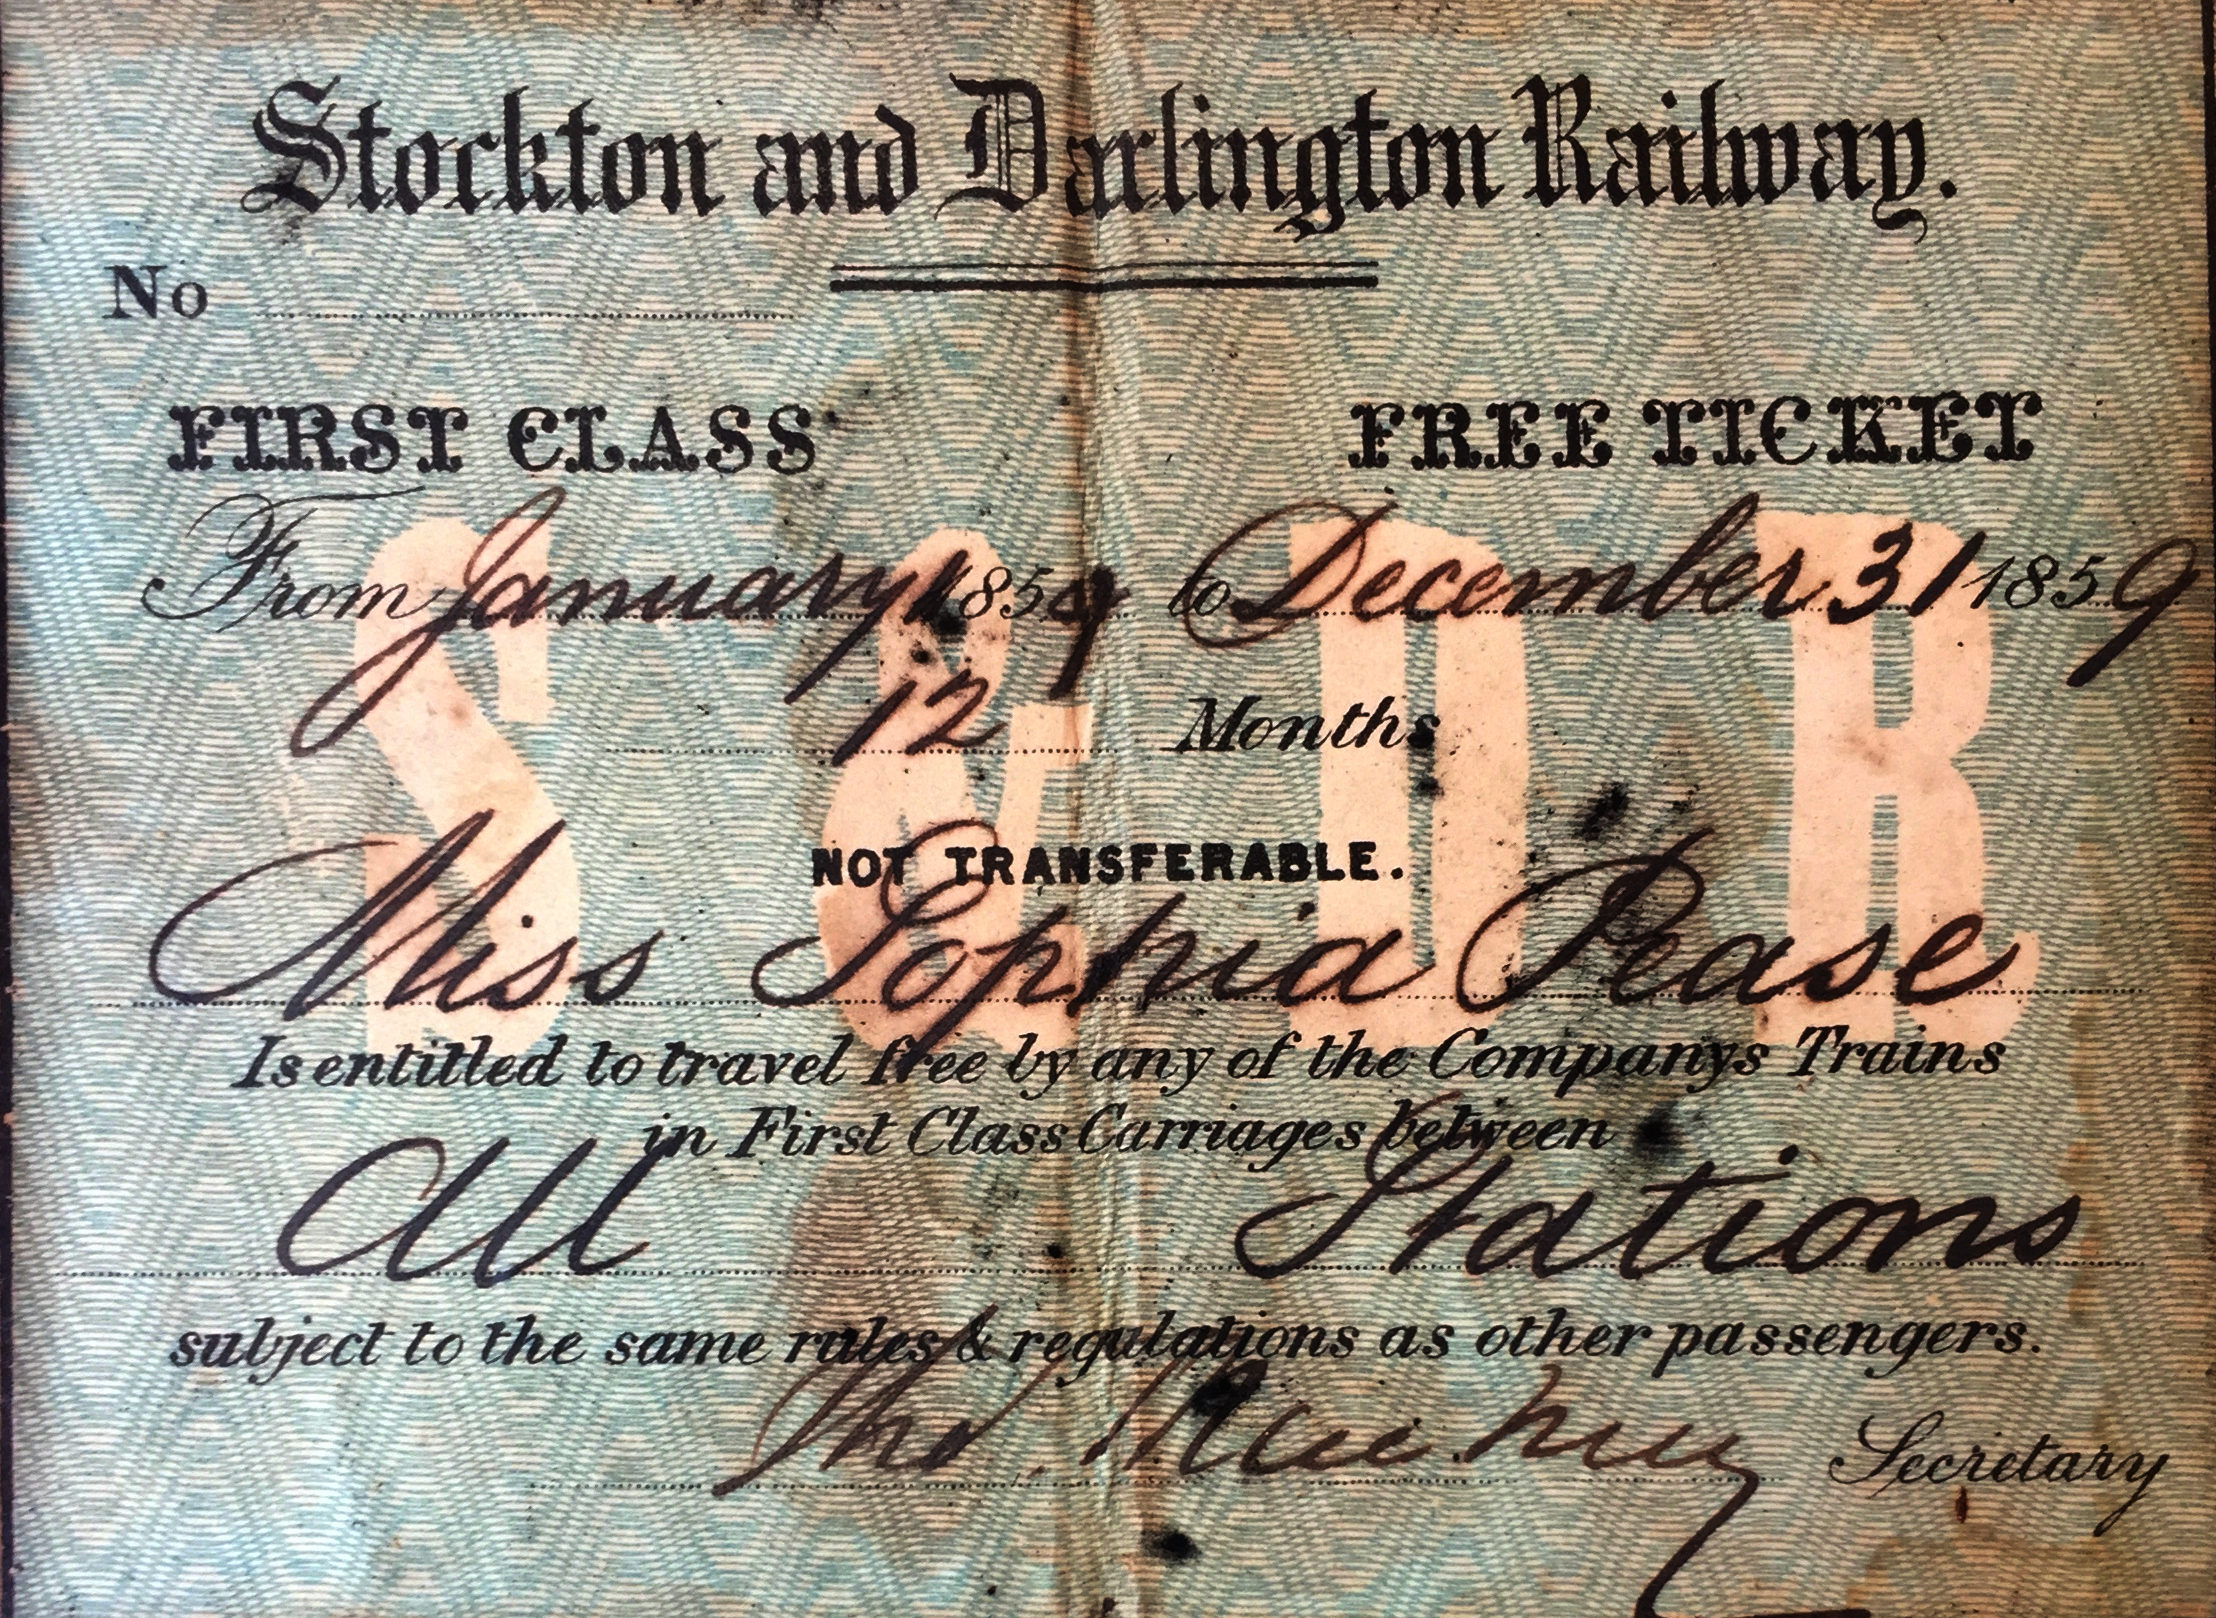 Stockton and Darlington Railway.
No
FIRST CLASS FREE TICKET
From January 1 1859 to December 31 1859
12 Months
S & D R
NOT TRANSFERABLE.
Miss Sophia Pease
Is entitled to travel free by any of the Companys Trains
in First Class Carriages between
All Stations
subject to the same rules & regulations as other passengers.
Secretary